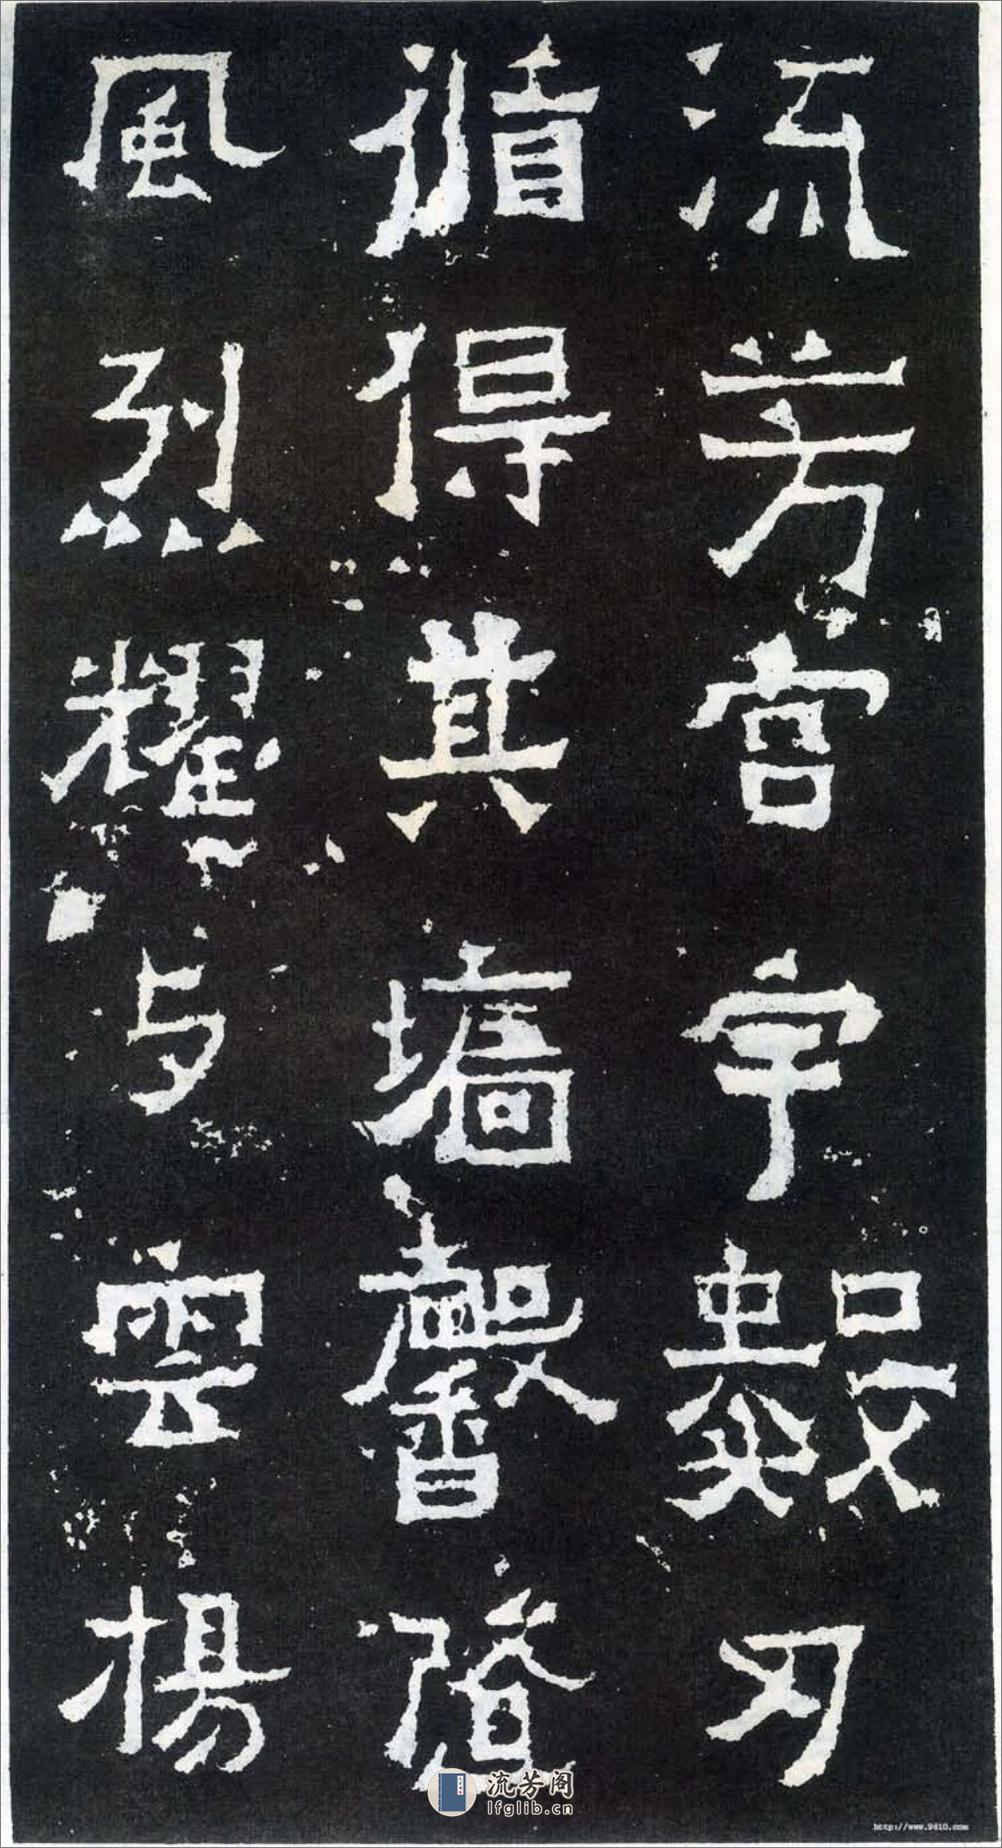 流芳宮宇數刃
循得其墻馨隨
風烈耀与雲楊
流芳阁
lfglib.cn
http://www.9610.com